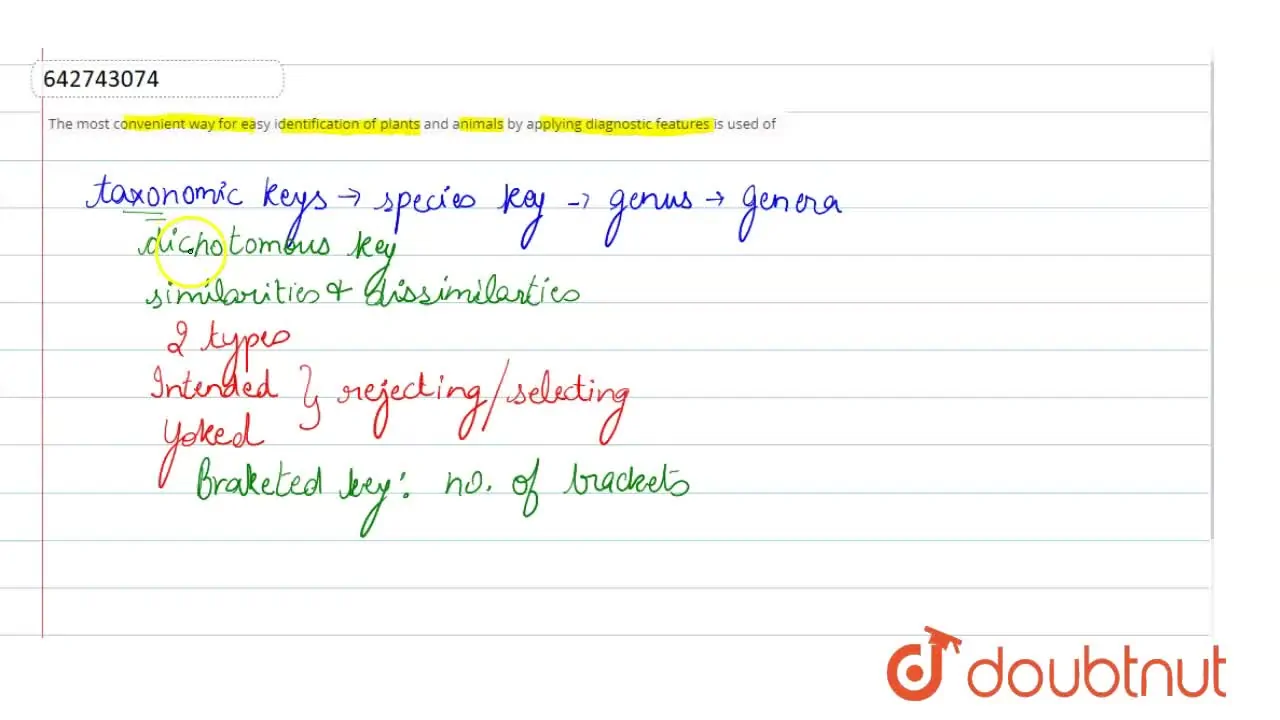 642743074
The most convenient way for easy identification of plants and animals by applying diagnostic features is used of
taxonomic keys → species key → genus → genera
dichotomous key
similarities & dissimilarties
2 types
Intended } rejecting/selecting
Yoked
Braketed key: no. of brackets
doubtnut